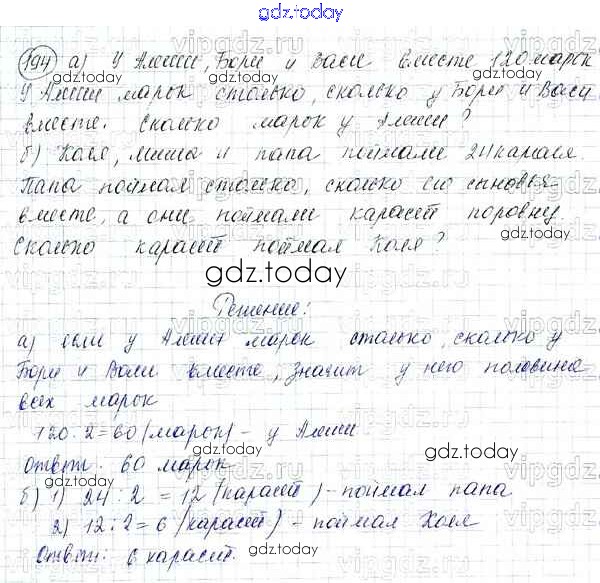 gdz.today
194 а) У Алёши, Бори и Васи вместе 120 марок
У Алёши марок столько, сколько у Бори и Васи
вместе. Сколько марок у Алёши?
б) Коля, Миша и папа поймали 24 карася.
Папа поймал столько, сколько его сыновья
вместе, а они поймали карасей поровну.
Сколько карасей поймал Коля?
gdz.today
Решение:
а) если у Алёши марок столько, сколько у
Бори и Васи вместе, значит у него половина
всех марок
120 : 2 = 60 (марок) - у Алёши
Ответ: 60 марок
б) 1) 24 : 2 = 12 (карасей) - поймал папа
2) 12 : 2 = 6 (карасей) - поймал Коля
Ответ: 6 карасей.
gdz.today